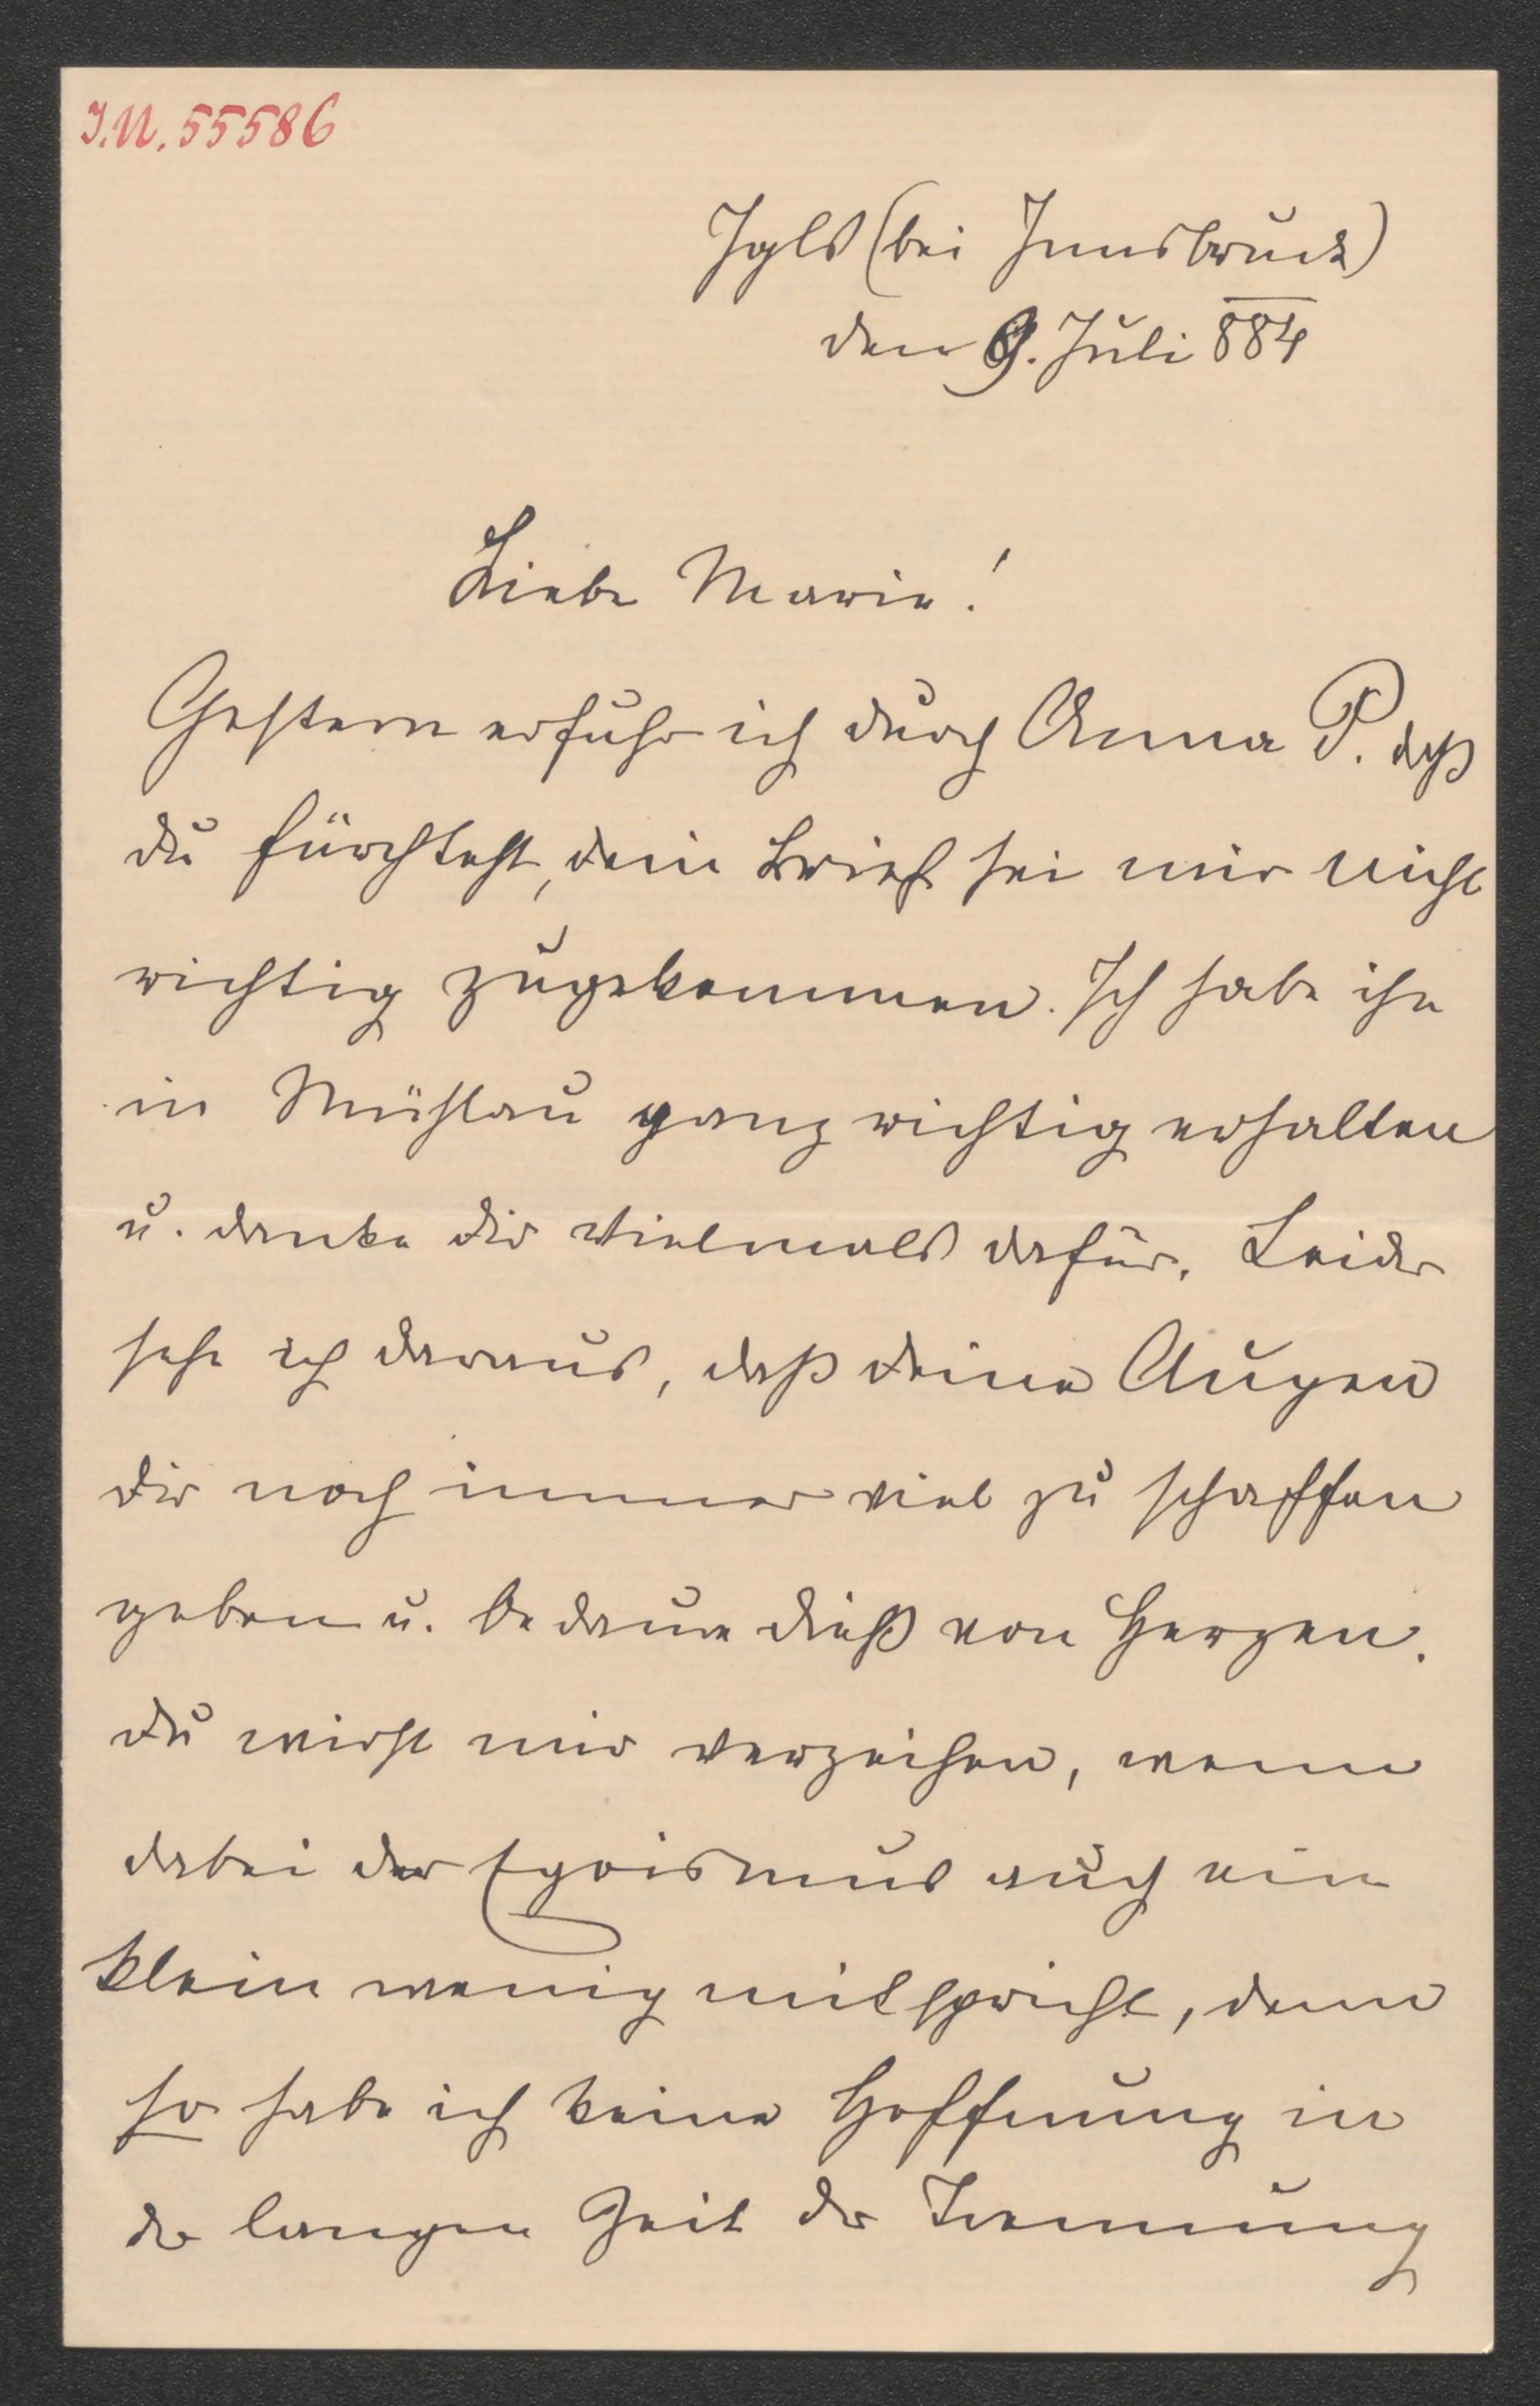 I.N. 55586
Igls (bei Innsbruck)
den 9. Juli 884
Liebe Marie!
Gestern erfuhr ich durch Anna P. daß
du fürchtest, dein Brief sei mir nicht
richtig zugekommen. Ich habe ihn
in Mühlau ganz richtig erhalten
u. danke dir vielmals dafür. Leider
sehe ich daraus, daß deine Augen
dir noch immer viel zu schaffen
geben u. bedaure dieß von Herzen.
Du wirst mir verzeihen, wenn
dabei der Egoismus auch ein
klein wenig mitspricht, denn
so habe ich keine Hoffnung in
der langen Zeit der Trennung